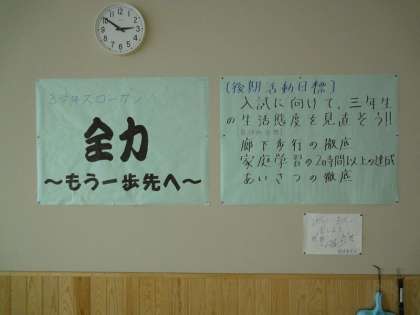 3学年スローガン
全力
～もう一歩先へ～
(後期活動目標)
入試に向けて、三年生
の生活態度を見直そう!!
廊下歩行の徹底
家庭学習の2時間以上の達成
あいさつの徹底